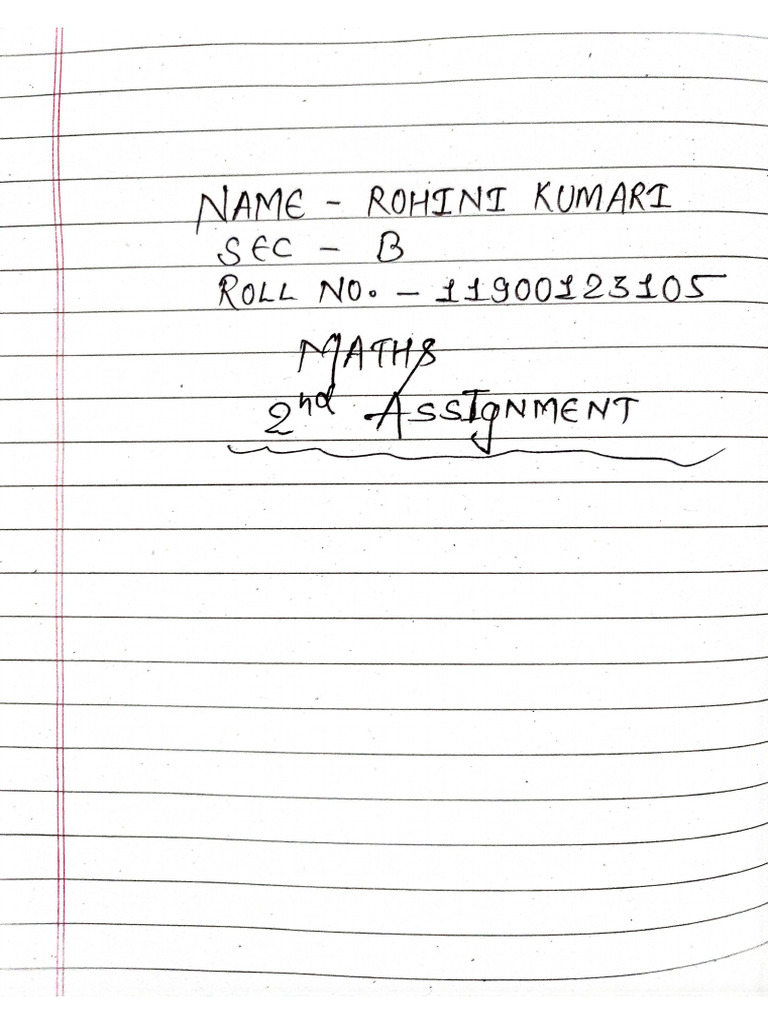 NAME - ROHINI KUMARI
SEC - B
ROLL NO. - 11900123105
MATHS
2nd ASSIgNMENT